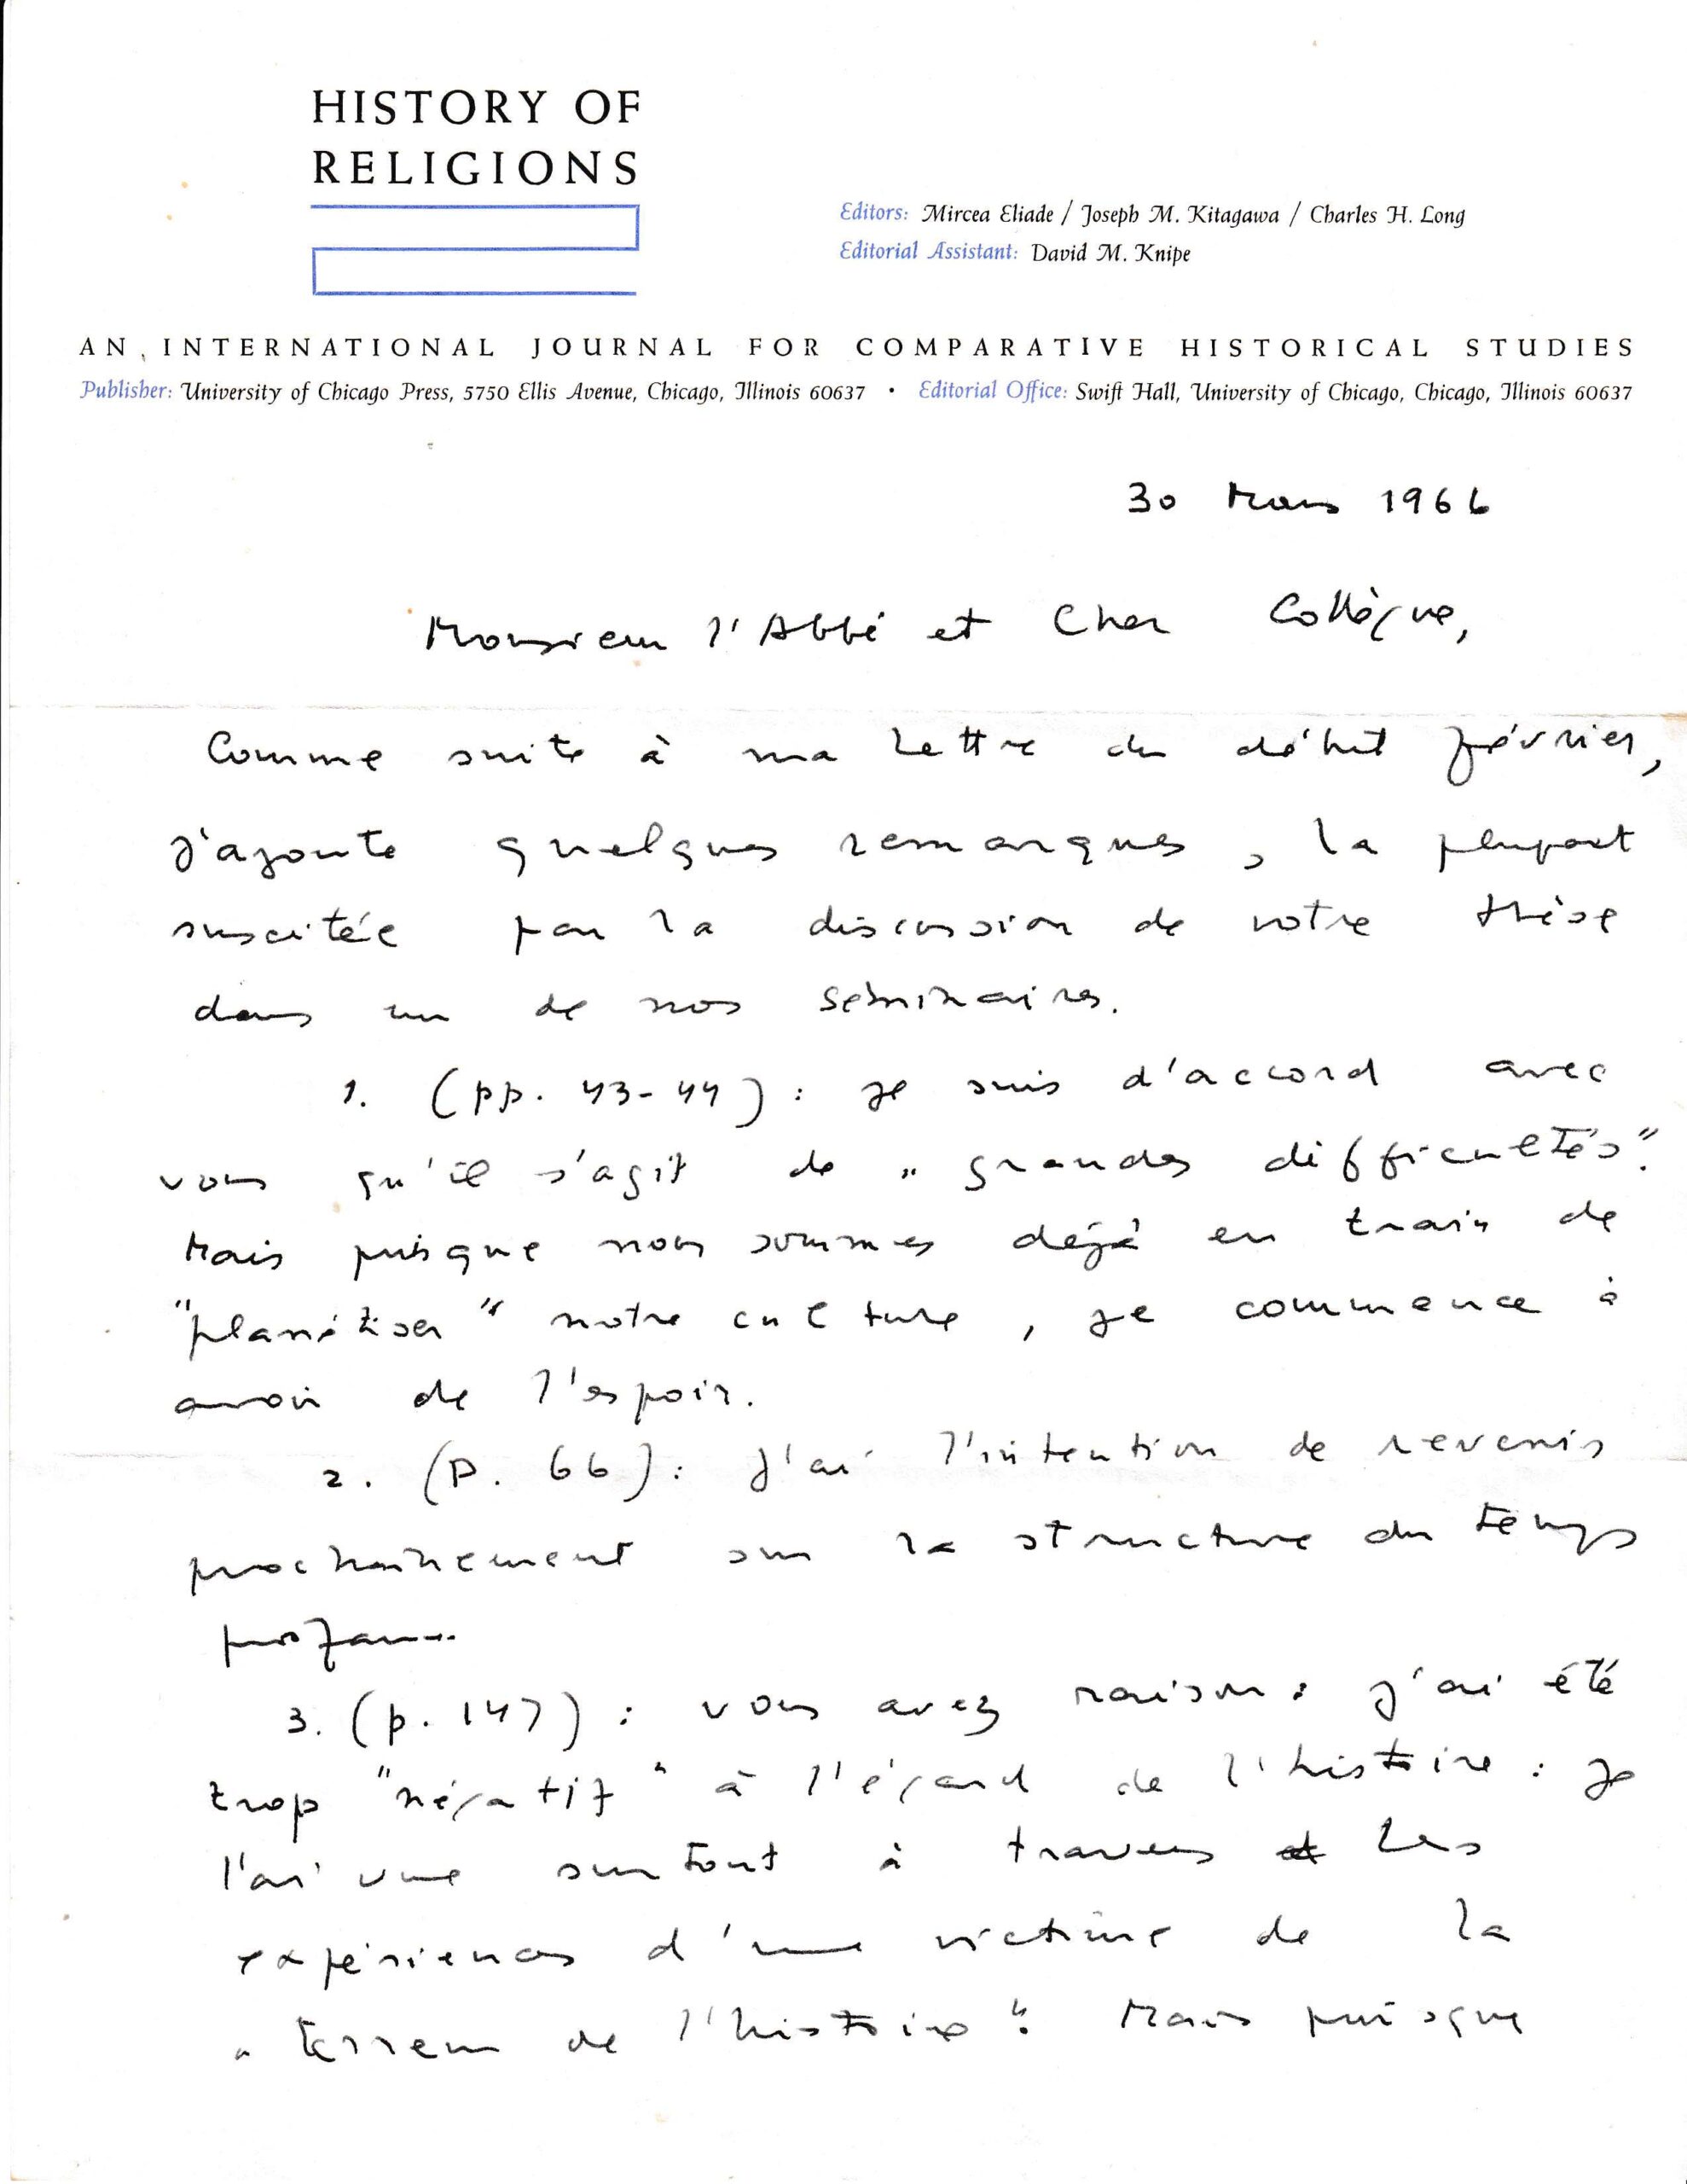 HISTORY OF
RELIGIONS
Editors: Mircea Eliade / Joseph M. Kitagawa / Charles H. Long
Editorial Assistant: David M. Knipe
AN INTERNATIONAL JOURNAL FOR COMPARATIVE HISTORICAL STUDIES
Publisher: University of Chicago Press, 5750 Ellis Avenue, Chicago, Illinois 60637 • Editorial Office: Swift Hall, University of Chicago, Chicago, Illinois 60637
30 Mars 1966
Monsieur l'Abbé et Cher Collègue,
Comme suite à ma lettre du début février,
j'ajoute quelques remarques, la plupart
suscitée par la discussion de votre thèse
dans un de nos séminaires.
1. (pp. 43-44): je suis d'accord avec
vous qu'il s'agit de „grandes difficultés".
Mais puisque nous sommes déjà en train de
"planétiser" notre culture, je commence à
avoir de l'espoir.
2. (p. 66): J'ai l'intention de revenir
prochainement sur la structure du temps
profane.
3. (p. 147): vous avez raison: j'ai été
trop "négatif" à l'égard de l'histoire: je
l'ai vue surtout à travers les
expériences d'une victime de la
„terreur de l'histoire". Mais puisque